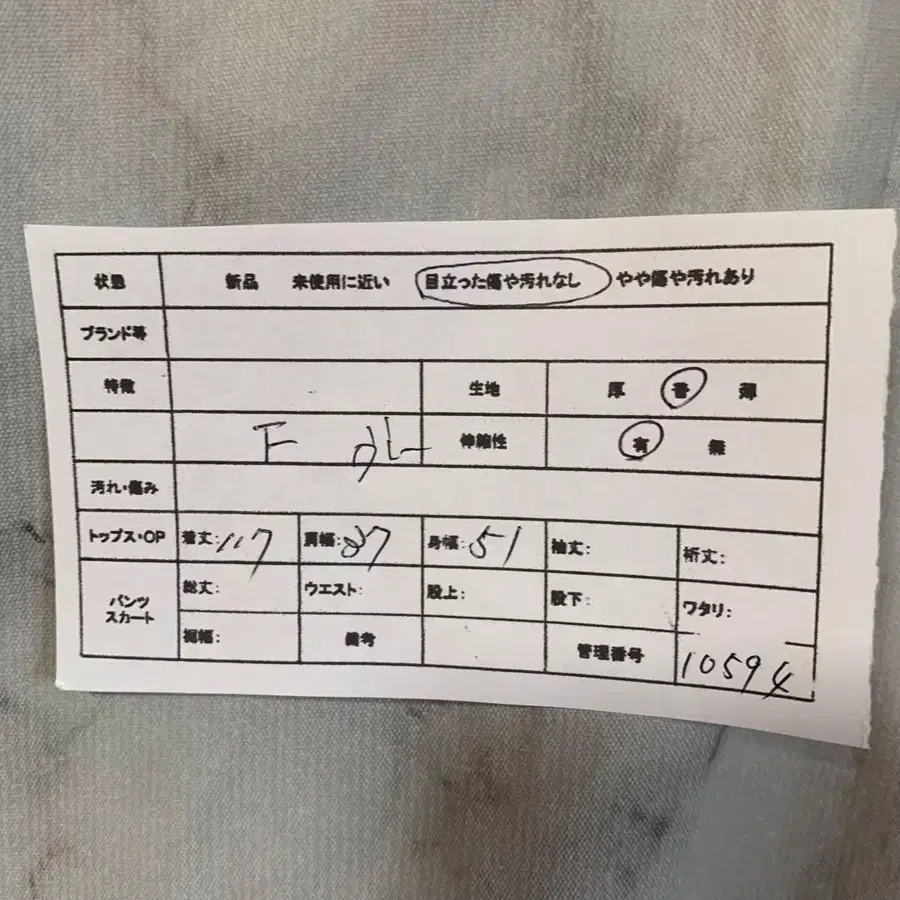 状態 新品 未使用に近い 目立った傷や汚れなし やや傷や汚れあり
ブランド等
特徴 生地 厚 普 薄
F 伸縮性 有 無
汚れ・傷み
トップス・OP 着丈:117 肩幅:37 身幅:51 袖丈: 裄丈:
パンツ スカート 総丈: ウエスト: 股上: 股下: ワタリ:
裾幅: 備考 管理番号 10594